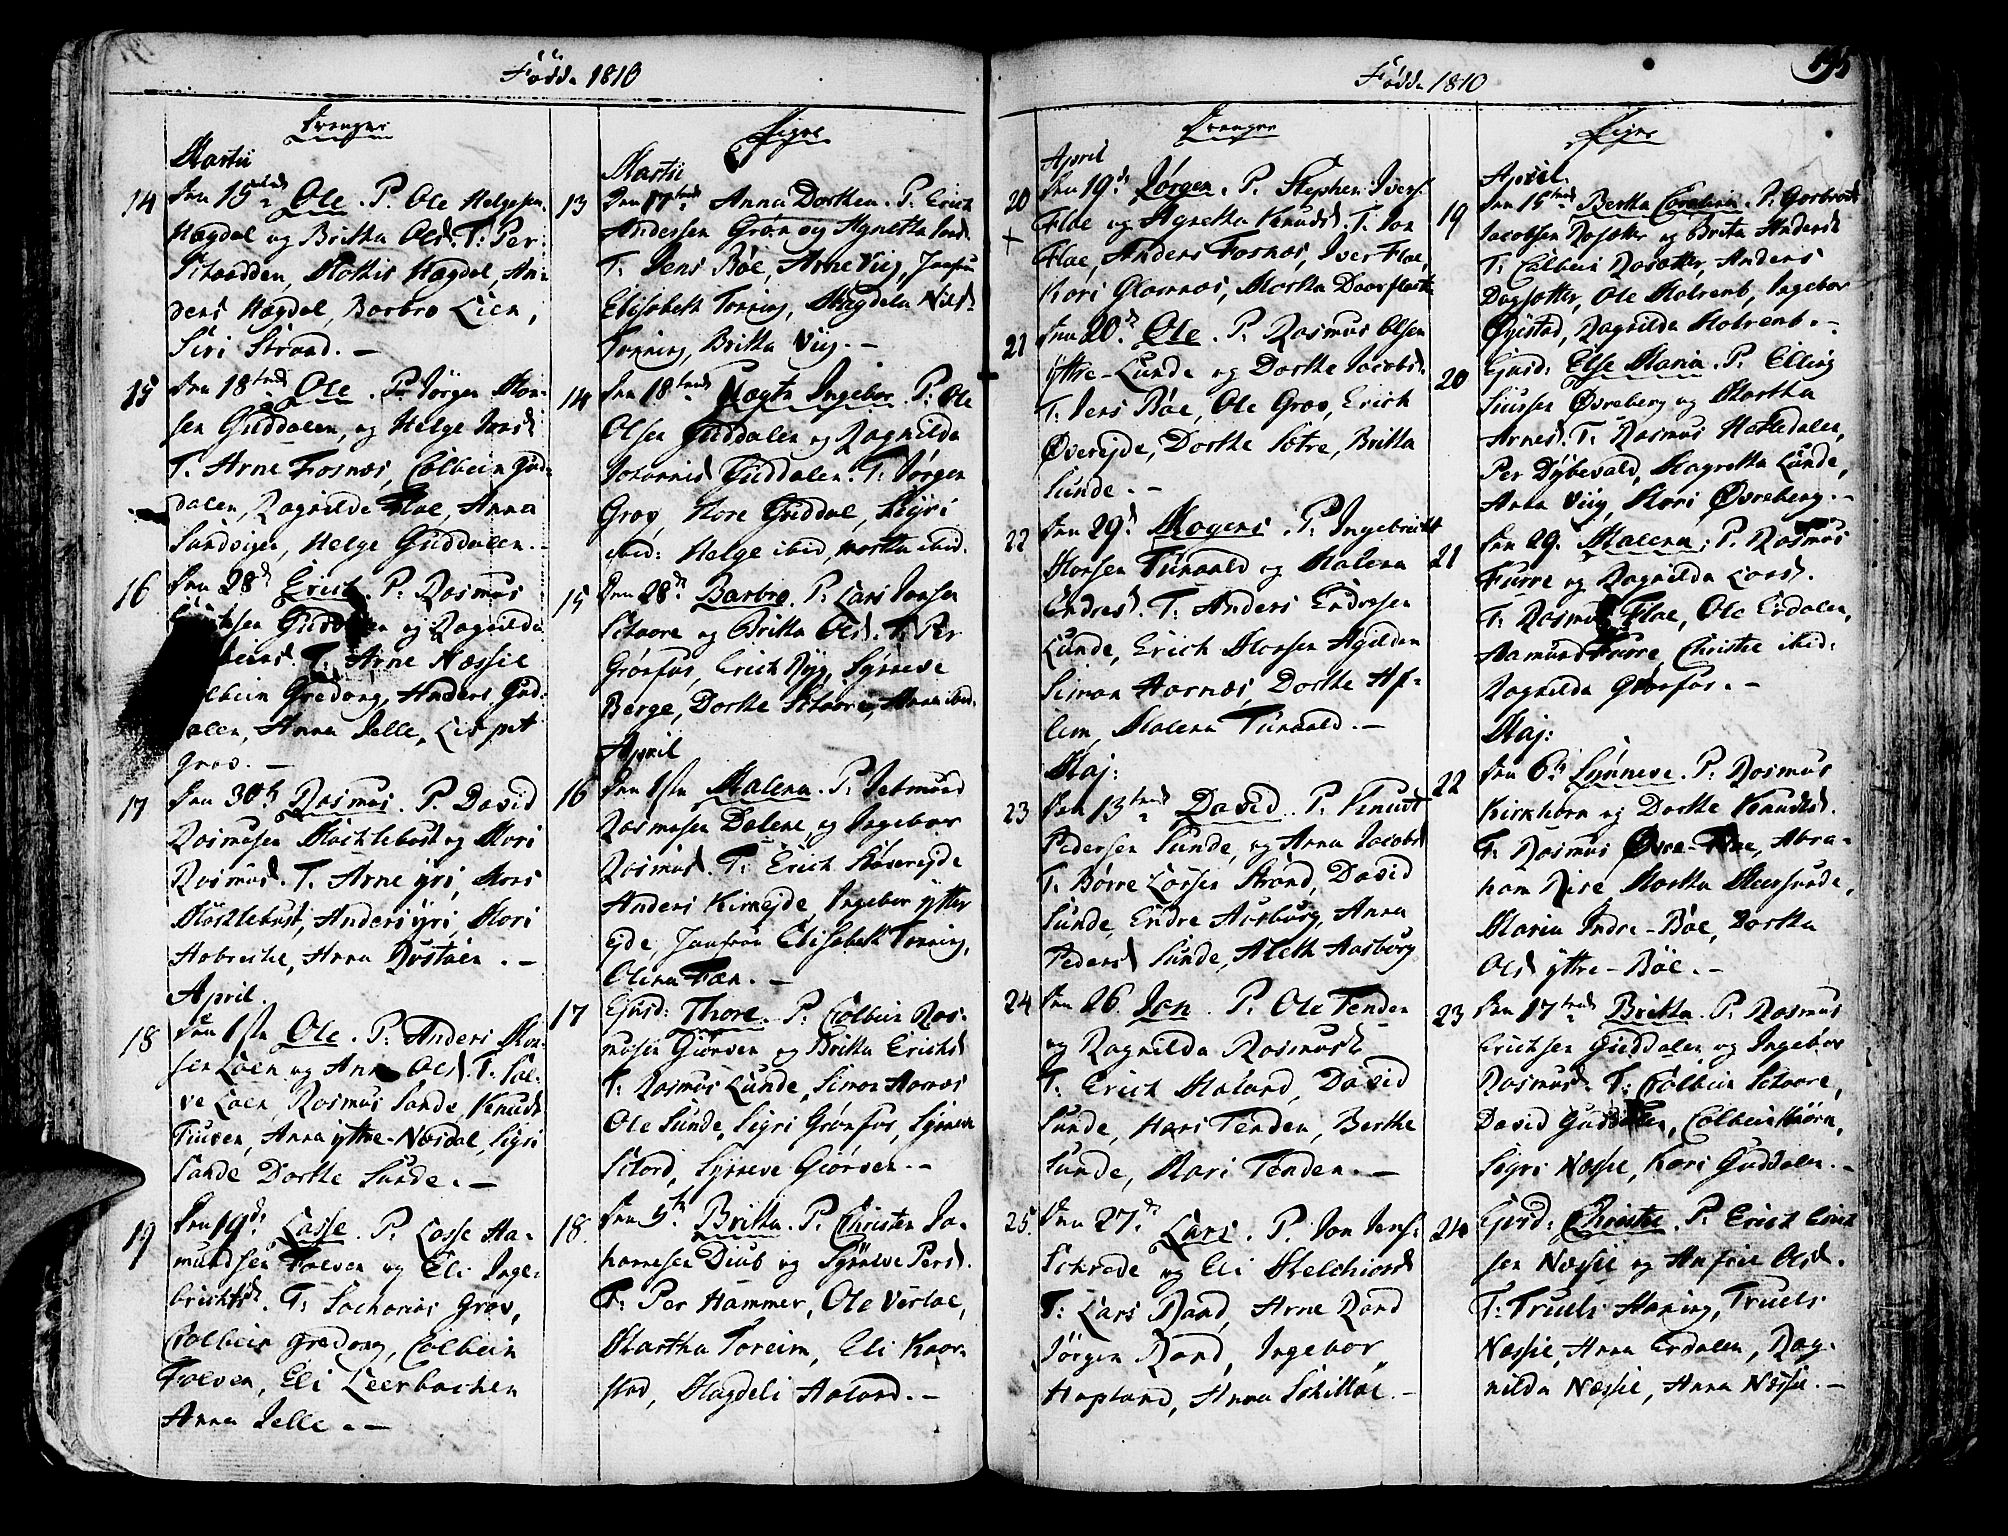 Fødde 1810
Drenger
Martii
14 Den 15de Ole. P. Ole Helgesen
Hægdal og Britha Olsd. T: Per
Straadden, Mothis Hægdal, An-
ders Hægdal, Barbro Lien,
Siri Strand. —
15 Den 18tende Ole. P. Jørgen Mon-
sen Guddalen, og Helge Jonsd
T. Arne Fosnæs, Colbein Gud-
dalen, Ragnilde Flae, Anna
Sandvigen, Helge Guddalen. —
16 Den 28d Erich. P. Rasmus
Guddalen og Ragnilda
T. Arne Næssie
Colbein Gredung, Anders Gud-
dalen, Anna Jelle, Lispet
Grov. —
17 Den 30th Rasmus. P. David
Rasmusen Mochlebust og Mari
Rasmusd. T. Arne Yri, Mons
Mochlebust, Anders Yri, Mari
Aabrecke, Anna Rustøen. —
April.
18 Den 1ste Ole. P. Anders Mon-
sen Loen og Anne Olsd. T. Sal-
ve Loen, Rasmus Sande, Knudt
Tiuven, Anna Yttre-Næsdal, Sigri
Sande Dorthe Sunde. —
19 Den 19d: Lasse. P. Lasse Aa-
mundsen Folven og Eli Inge-
brichtsd. T: Sacharias Grov,
Colbein Gredung, Colbein
Folven, Eli Leerbachen
Anna Jelle. —
Piger
Martii
13 Den 17tende Anna Dorthea. P. Erich
Andersen Grøn og Agnetha Jonsd
T. Jens Bøe, Arne Viig, Jomfru
Elisabeth Tonning, Magdela Nilsd
Tonning, Britha Viig. —
14 Den 18tende Magta Ingebor. P. Ole
Olsen Guddalen og Ragnilda
Johannisd Guddalen. T. Jørgen
Grov, Tore Guddal, Sigri
ibid: Helge ibid, Martha ibid.
15 Den 28de Barbro. P. Lars Jonsen
Schaare og Britha Olsd. T. Per
Grønfur, Erich Ryg, Synneve
Berge, Dorthe Schaare, Anna ibid.
April
16 Den 1ste Malena. P. Jetmund
Rasmusen Dalene, og Ingebor
Rasmusd. T: Erich Støvereyde
Anders Kirkeyde, Ingebor Ytter
Eyde, Jomfrue Elisabeth Tonning,
Olina Fæn. —
17 Ejusd: Thore. P. Colbein Ras-
musen Giørven og Britha Erichsd
T. Rasmus Lunde, Simon Hornæs
Ole Sunde, Sigri Grønfur, Synneve
Schord, Synneve Giørven. —
18. Den 5th Britha. P. Christen Jo-
hannesen Diub og Synneve Persd.
T: Per Hammer, Ole Verlae,
Martha Toreim, Eli Kaar-
stad, Magdeli Aaland. —
Fødde 1810
195
Drenger
April
20 Den 19de Jørgen. P. Stephen Ivers.
+ Flae og Agnetha Knudsd. T. Jon
Flae, Anders Fosnæs, Iver Flae,
Kari Glomnæs, Martha Daarfloth
21 Den 20de Ole. P. Rasmus Olsen
Yttre-Lunde og Dorthe Jacobsd.
T. Jens Bøe, Ole Grov, Erich
Øvereyde, Dorthe Sætre, Britha
Sunde. —
22 Den 29d Mogens. P. Ingebricht
Monsen Tunvald og Malena
Endresd. T: Anders Endresen
Lunde, Erich Monsen Agilden
Simon Hornæs, Dorthe Af-
lem, Malena Tunvald. —
Maj:
23 Den 13tende David. P. Knudt
Pedersen Sunde, og Anna Jacobsd
T. Børre Larsen Strand, David
Sunde, Endre Aarburg, Anna
Pedersd Sunde, Aleth Aasburg
24 Den 26 Jon. P. Ole Tenden
og Ragnilda Rasmusd.
T. Erich Maland, David
Sunde, Hans Tenden, Berthe
Sunde, Mari Tenden. —
25. Den 27de Lars. P. Jon Jens.
Schrede og Eli Melchiorsd
T: Lars Rand, Arne Rand
Jørgen Rand, Ingebor
Hopland, Anna Schillae. —
Piger
April.
19 Den 15tende Bertha Carolina. P. Gerbrandt
Jacobsen Rosætter og Brita Andersd
T: Colbein Rosætter, Anders
Dagsætter, Ole Molrenb, Ingebor
Øyestad, Ragnilda Molrenb. —
20 Ejusd: Else Maria. P. Elling
Siursen Øvreberg og Martha
Arnesd. T: Rasmus Hockedalen,
Per Dybevald, Magretha Lunde,
Anna Viig, Mari Øvreberg. —
21 Den 29. Malena. P. Rasmus
Furre og Ragnilda Larsd.
T. Rasmus Flae, Ole Erdalen,
Aamund Furre, Christie ibid:
Ragnilda Grønfur. —
Maj:
22 Den 6te Synneve. P. Rasmus
Kirkhorn og Dorthe Knudtsd.
T: Rasmus Øvre-Floe, Abra-
ham Rise Martha Meersunde,
Maria Indre-Bøe, Dortha
Olsd Yttre-Bøe. —
23 Den 17tende Britha. P. Rasmus
Erichsen Guddalen og Ingebor
Rasmusd. T: Colbein Schaare,
David Guddalen, Colbein Hiørn,
Sigri Næssie, Kari Guddalen. —
24 Ejusd: Christie. P. Erich Erich
sen Næssie og Anfrie Olsd.
T: Truels Honing, Truels
Næssie, Anna Erdalen, Rag-
nilda Næssie, Anna Næssie. —